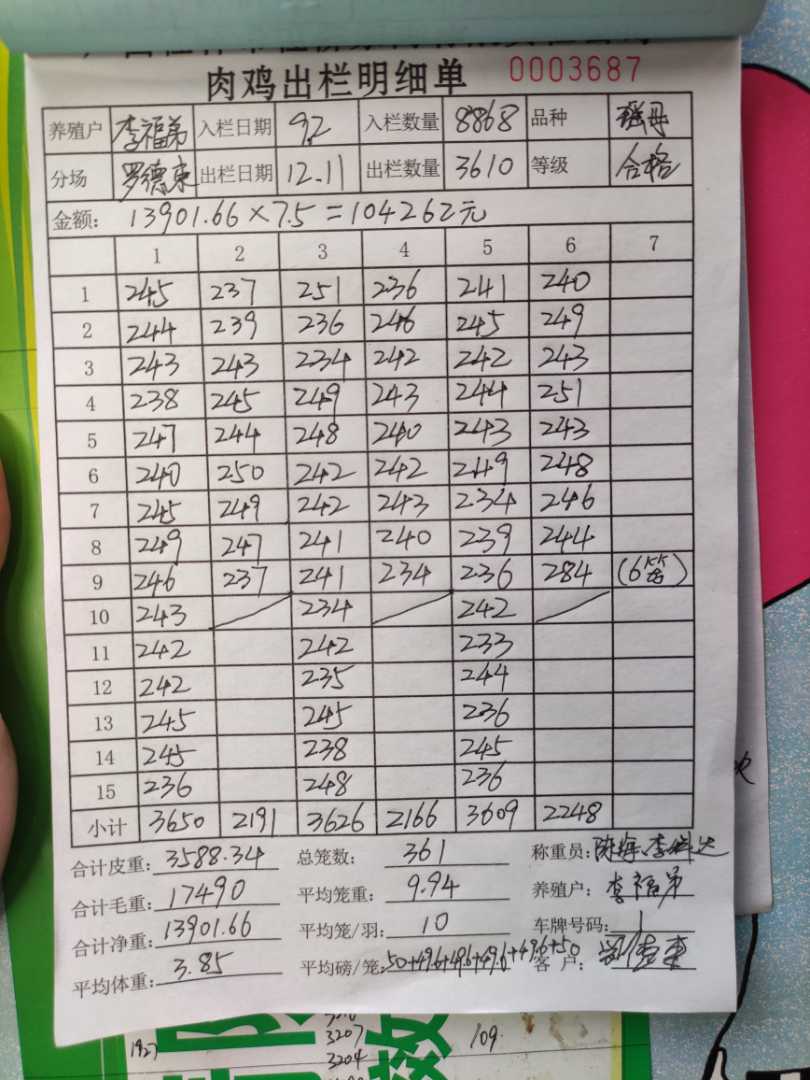 肉鸡出栏明细单 0003687
养殖户 李福弟 入栏日期 9.2 入栏数量 8868 品种
分场 罗德东 出栏日期 12.11 出栏数量 3610 等级 合格
金额: 13901.66×7.5=104262元
1 2 3 4 5 6 7
1 245 237 251 236 241 240
2 244 239 236 246 245 249
3 243 243 234 242 242 243
4 238 245 249 243 244 251
5 247 244 248 240 243 243
6 240 250 242 242 249 248
7 245 249 242 243 234 246
8 249 247 241 240 239 244
9 246 237 241 234 236 284 (6
10 243 234 242
11 242 242 233
12 242 235 244
13 245 245 236
14 245 238 245
15 236 248 236
小计 3650 2191 3626 2166 3609 2248
合计皮重: 3588.34 总笼数: 361 称重员:
合计毛重: 17490 平均笼重: 9.94 养殖户: 李福弟
合计净重: 13901.66 平均笼/羽: 10 车牌号码: 1
平均体重: 3.85 平均磅/笼: 50+49.6+49.6+49.6+49.6+50 客户:
1927 3207 109
3204